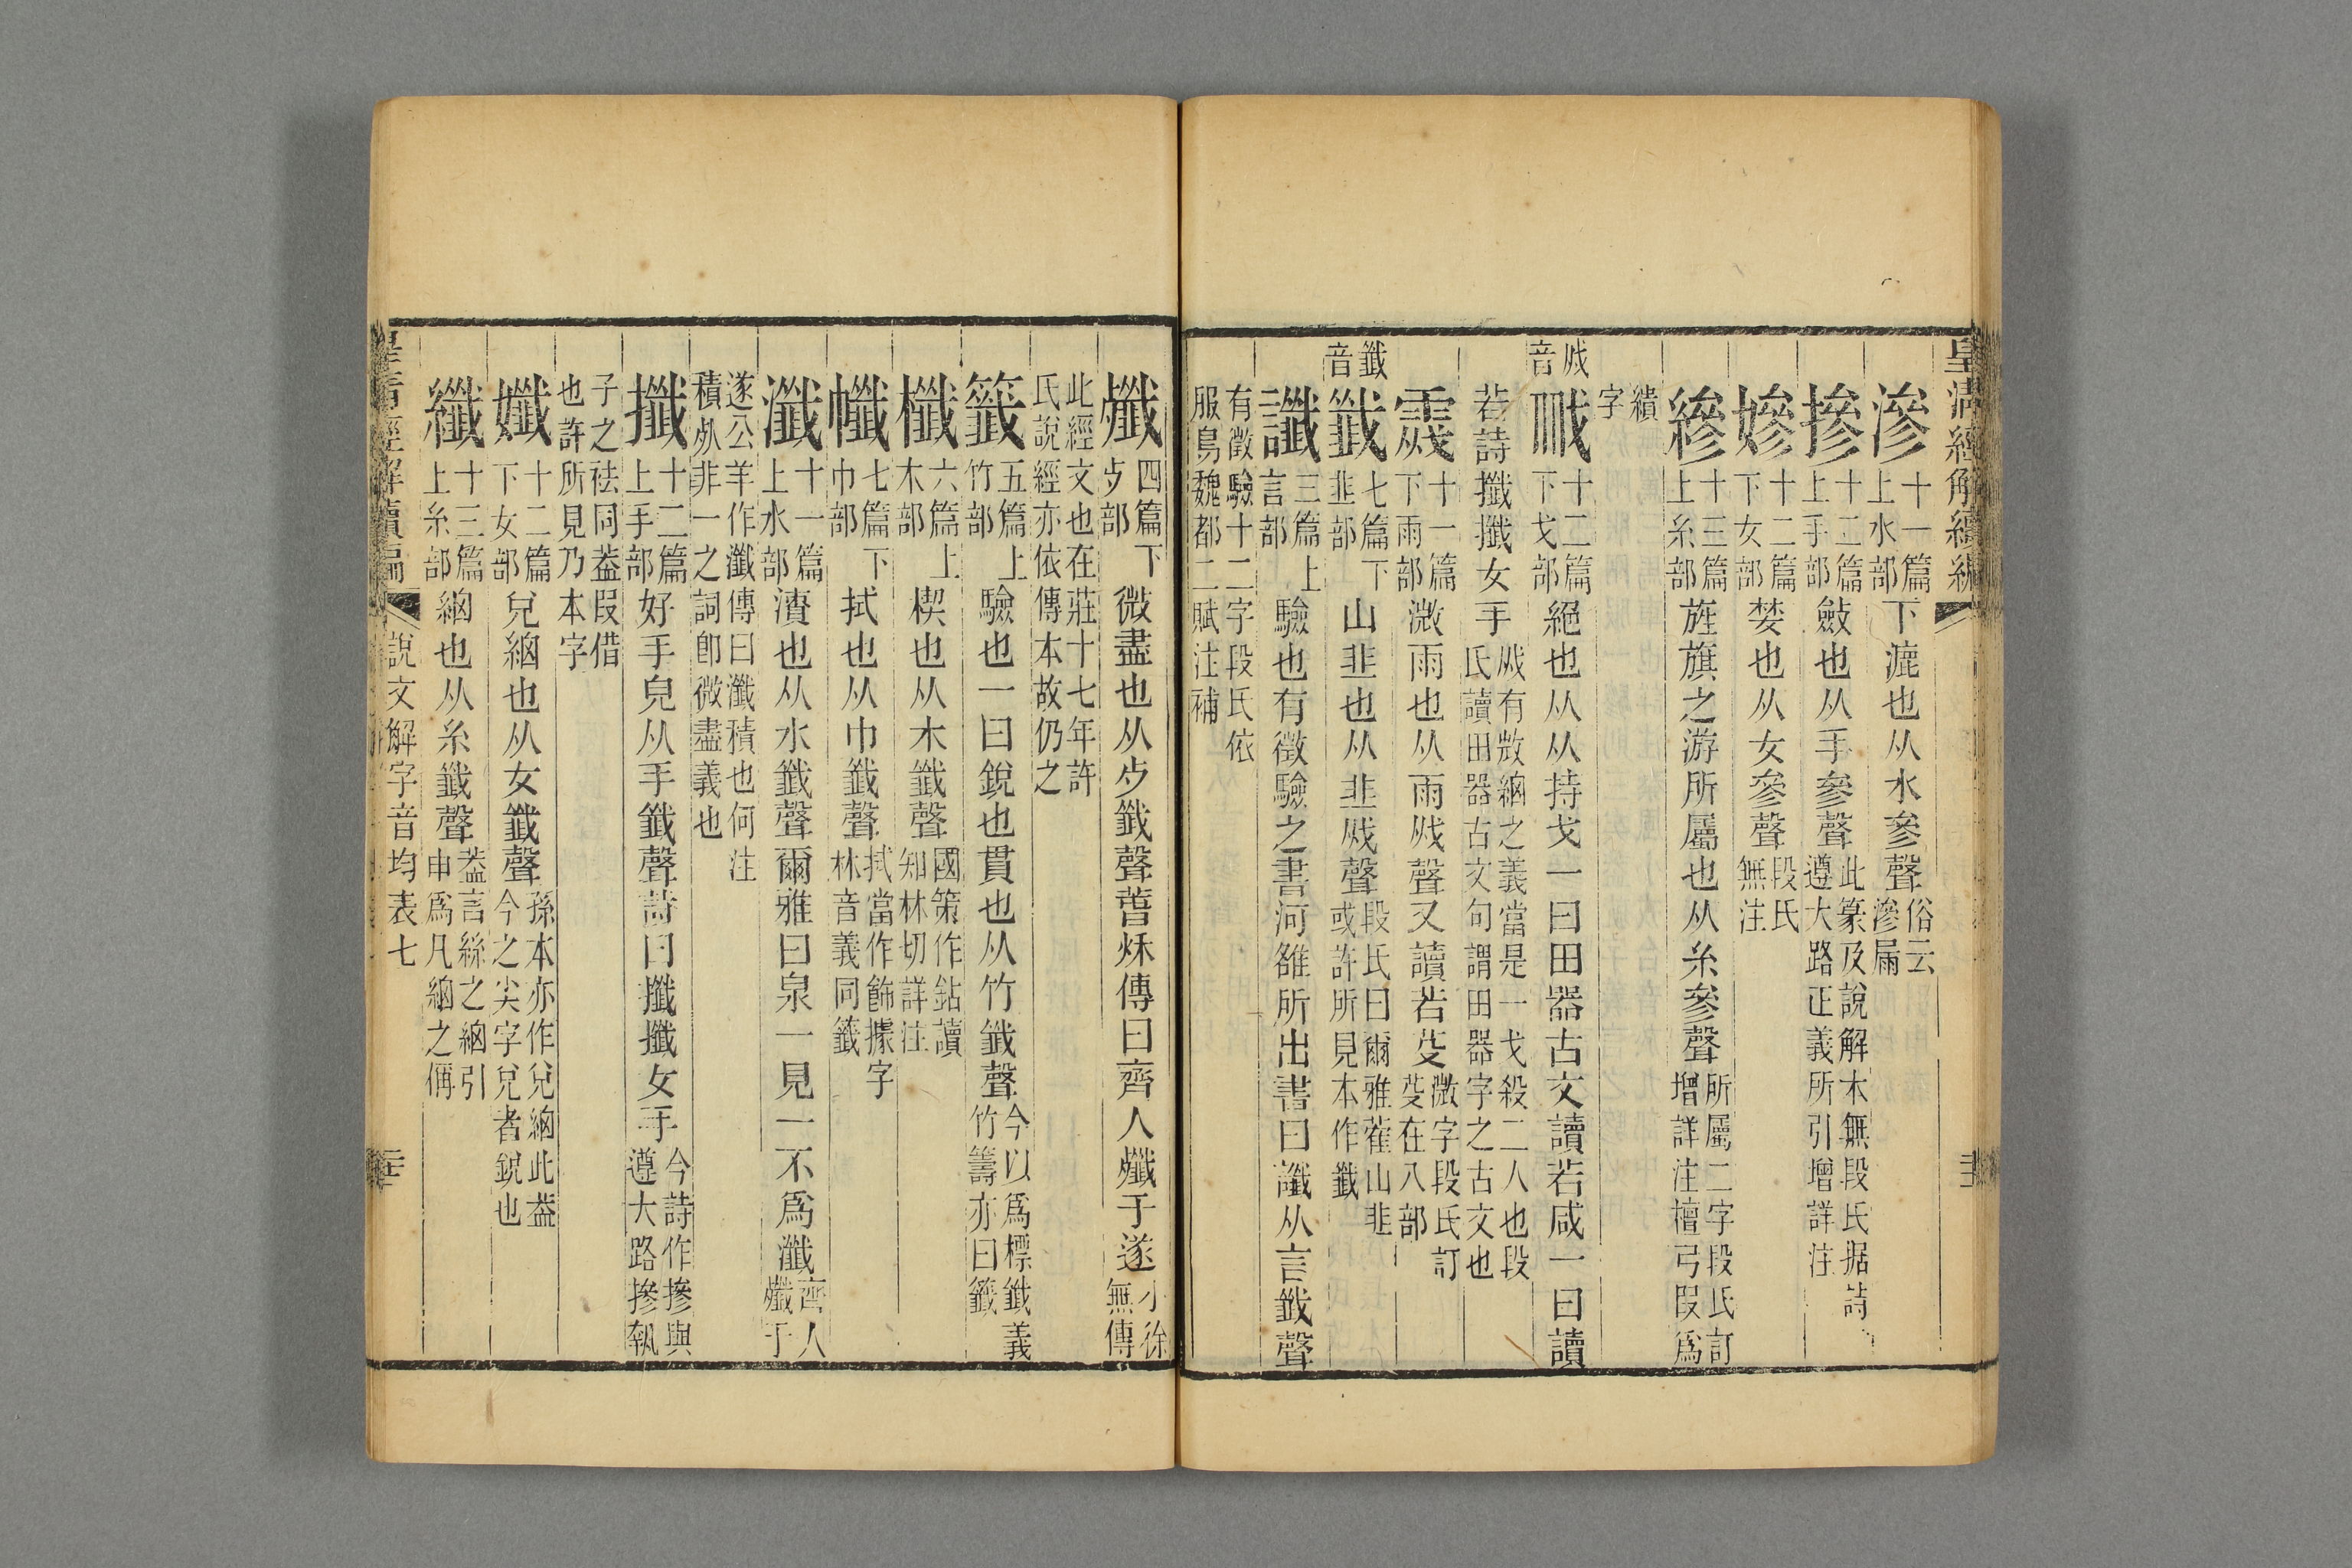 皇淸經解續編
滲十一篇上水部下漉也从水參聲俗云滲屚
摻十二篇上手部斂也从手參聲此篆及說解本無段氏据詩遵大路正義所引增詳注
嬸十二篇下女部婪也从女參聲段氏無注
縿十三篇上糸部旌旗之游所屬也从糸參聲所屬二字段氏訂增詳注檀弓叚爲
縿字
𢦟音
𢦏十二篇下戈部絕也从从持戈一曰田器古文讀若咸一曰讀
若詩攕攕女手𢦟有㪔細之義當是一戈殺二人也段氏讀田器古文句謂田器字之古文也
䨘十一篇下雨部溦雨也从雨𢦟聲又讀若芟溦字段氏訂芟在八部
韱音
韱七篇下韭部山韭也从韭𢦟聲段氏曰爾雅藿山韭或許所見本作韱
讖三篇上言部驗也有徵驗之書河雒所出書曰讖从言韱聲
有徵驗十二字段氏依服鳥魏都二賦注補
殲四篇下歺部微盡也从歺韱聲春秋傳曰齊人殲于遂小徐無傳
此經文也在莊十七年許氏說經亦依傳本故仍之
籤五篇上竹部驗也一曰銳也貫也从竹韱聲今以爲標韱義竹籌亦曰籤
櫼六篇上木部楔也从木韱聲國策作鉆讀知林切詳注
㡨七篇下巾部拭也从巾韱聲拭當作飾據字林音義同籤
瀸十一篇上水部漬也从水韱聲爾雅曰泉一見一不爲瀸齊人殲于
遂公羊作瀸傳曰瀸積也何注積𣦸非一之詞卽微盡義也
攕十二篇上手部好手皃从手韱聲詩曰攕攕女手今詩作摻與遵大路摻執
子之袪同葢叚借也許所見乃本字
孅十二篇下女部兌細也从女韱聲孫本亦作兌細此葢今之尖字兌者銳也
纖十三篇上糸部細也从糸韱聲葢言絲之細引申爲凡細之偁
皇淸經解續編 說文解字音均表七